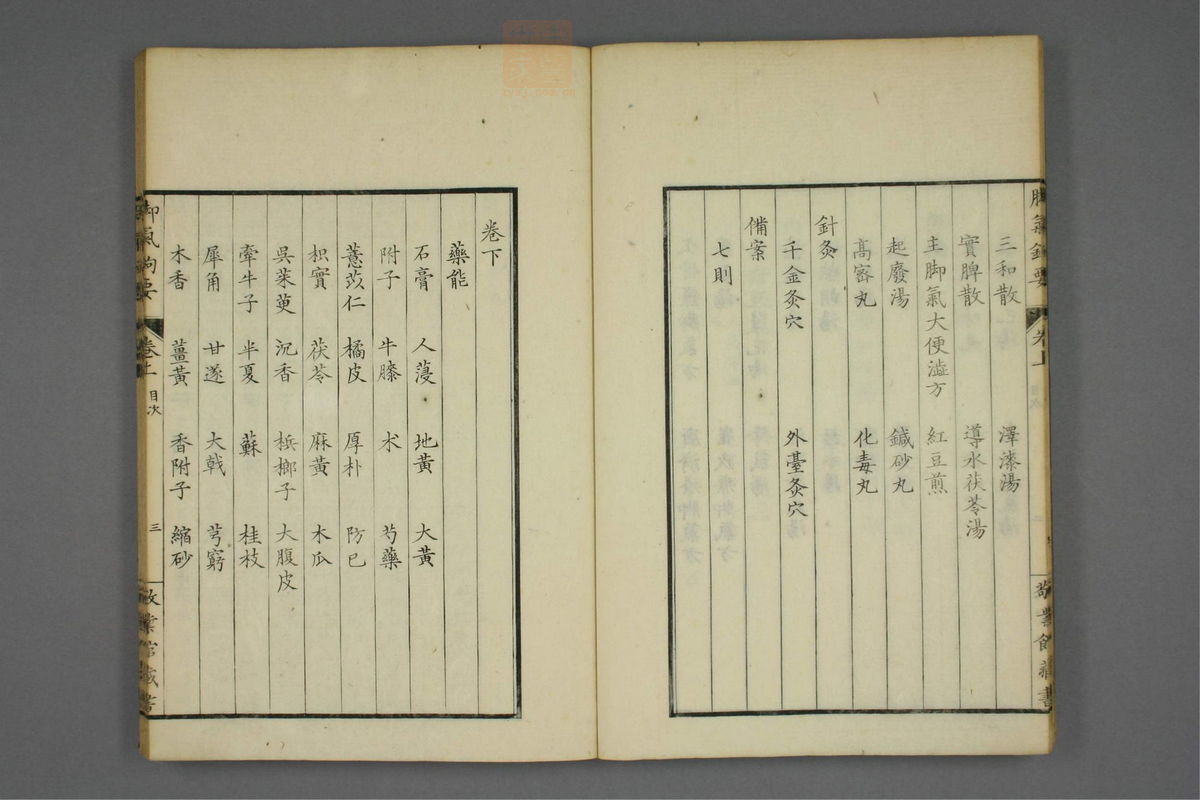 三和散 澤漆湯
實脾散 導水茯苓湯
主脚氣大便澁方 紅豆煎
起廢湯 鍼砂丸
高密丸 化毒丸
針灸
千金灸穴 外臺灸穴
備案
七則
卷下
藥能
石膏 人薓 地黃 大黃
附子 牛膝 朮 芍藥
薏苡仁 橘皮 厚朴 防已
枳實 茯苓 麻黃 木瓜
吳茱萸 沉香 梹榔子 大腹皮
牽牛子 半夏 蘇 桂枝
犀角 甘遂 大戟 芎窮
木香 薑黃 香附子 縮砂
脚氣鉤要 卷上 目次 三 敬業館藏書